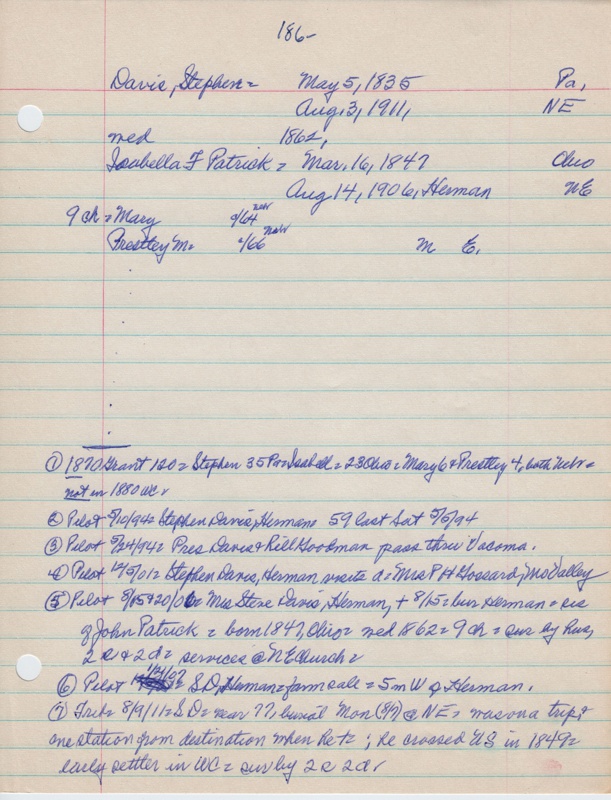 186-
Davis, Stephen = May 5, 1835 Pa,
Aug. 3, 1911, NE
wed 1862,
Isabella F Patrick = Mar. 16, 1847 Ohio
Aug 14, 1906, Herman NE
9 ch = Mary c/64 Nebr
Prestley M = c/66 Nebr M E.
① 1870 Grant 120 = Stephen 35 Pa = Isabell = 23 Ohio = Mary 6 & Prestley 4, both Nebr =
not in 1880 WC
② Pilot 5/10/94 = Stephen Davis, Herman = 59 last Sat 5/5/94
③ Pilot 5/24/94 = Pres Davis & Bill Goodman pass thru Vacoma.
④ Pilot 12/5/01 = Stephen Davis, Herman visits d = Mrs P H Gossard, Mo Valley
⑤ Pilot 8/15 & 20/06 = Mrs Steve Davis, Herman, + 8/15 = bur Herman = sis
of John Patrick = born 1847, Ohio = wed 1862 = 9 ch = sur by hus,
2 s & 2 d = services @ NE Church =
⑥ Pilot 1/21/07 = S D, Herman = farm sale = 5 m W of Herman.
⑦ Trib = 8/9/11 = S D = near 77, burial Mon (8/7) @ NE = was on a trip &
one station from destination when he + = ; he crossed US in 1849 =
early settler in WC = sur by 2 s 2 d